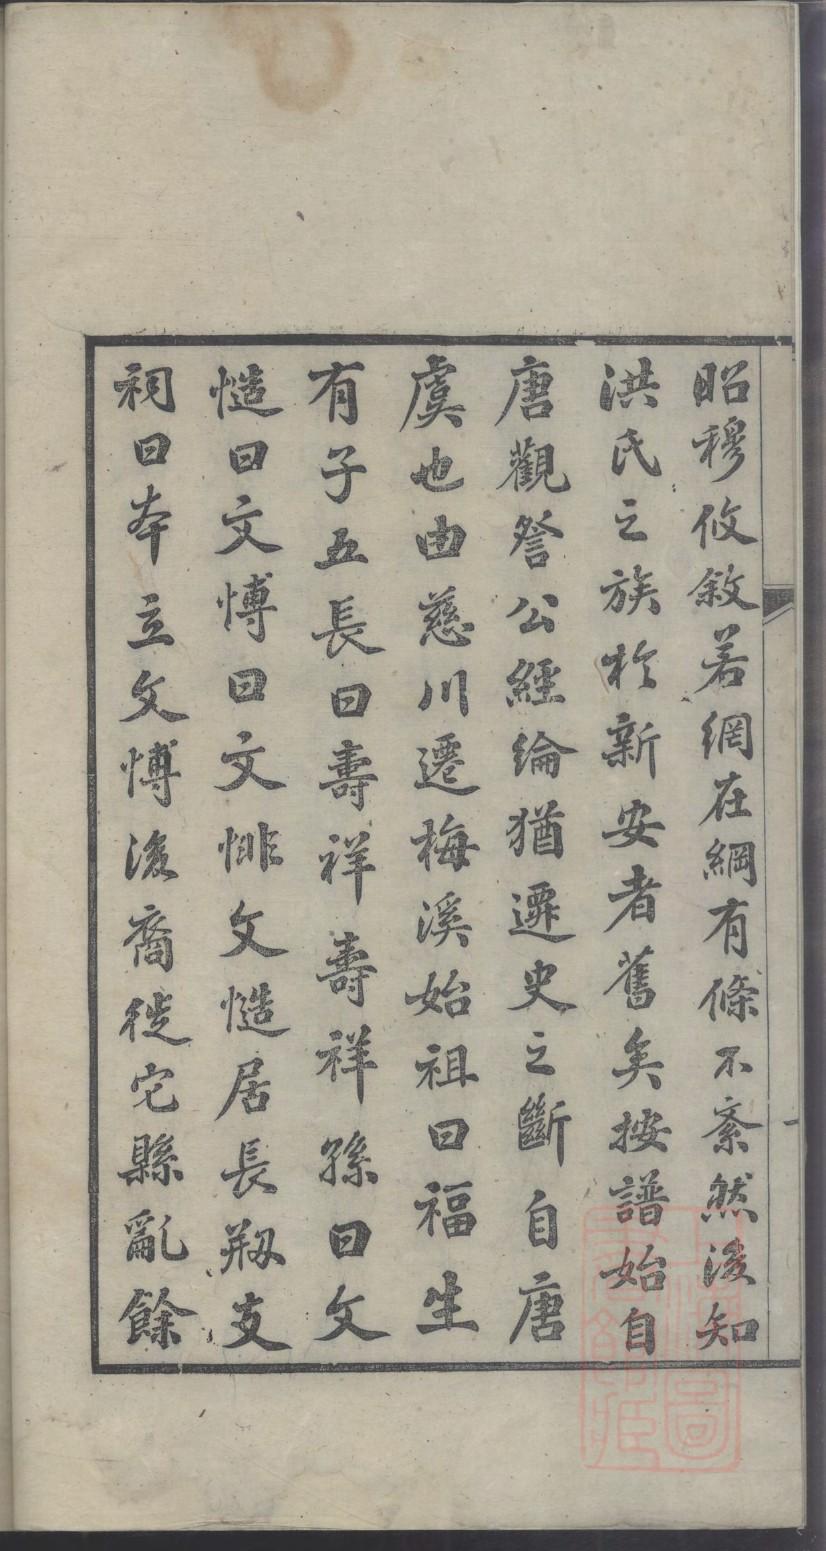 昭穆攸敘若網在綱有條不紊然後知
洪氏之族於新安者舊矣按譜始自
唐觀詧公經綸猶遷史之斷自唐
虞也由慈川遷梅溪始祖曰福生
有子五長曰壽祥壽祥孫曰文
慥曰文愽曰文悱文慥居長剏支
祠曰本立文愽後裔徙它縣亂餘